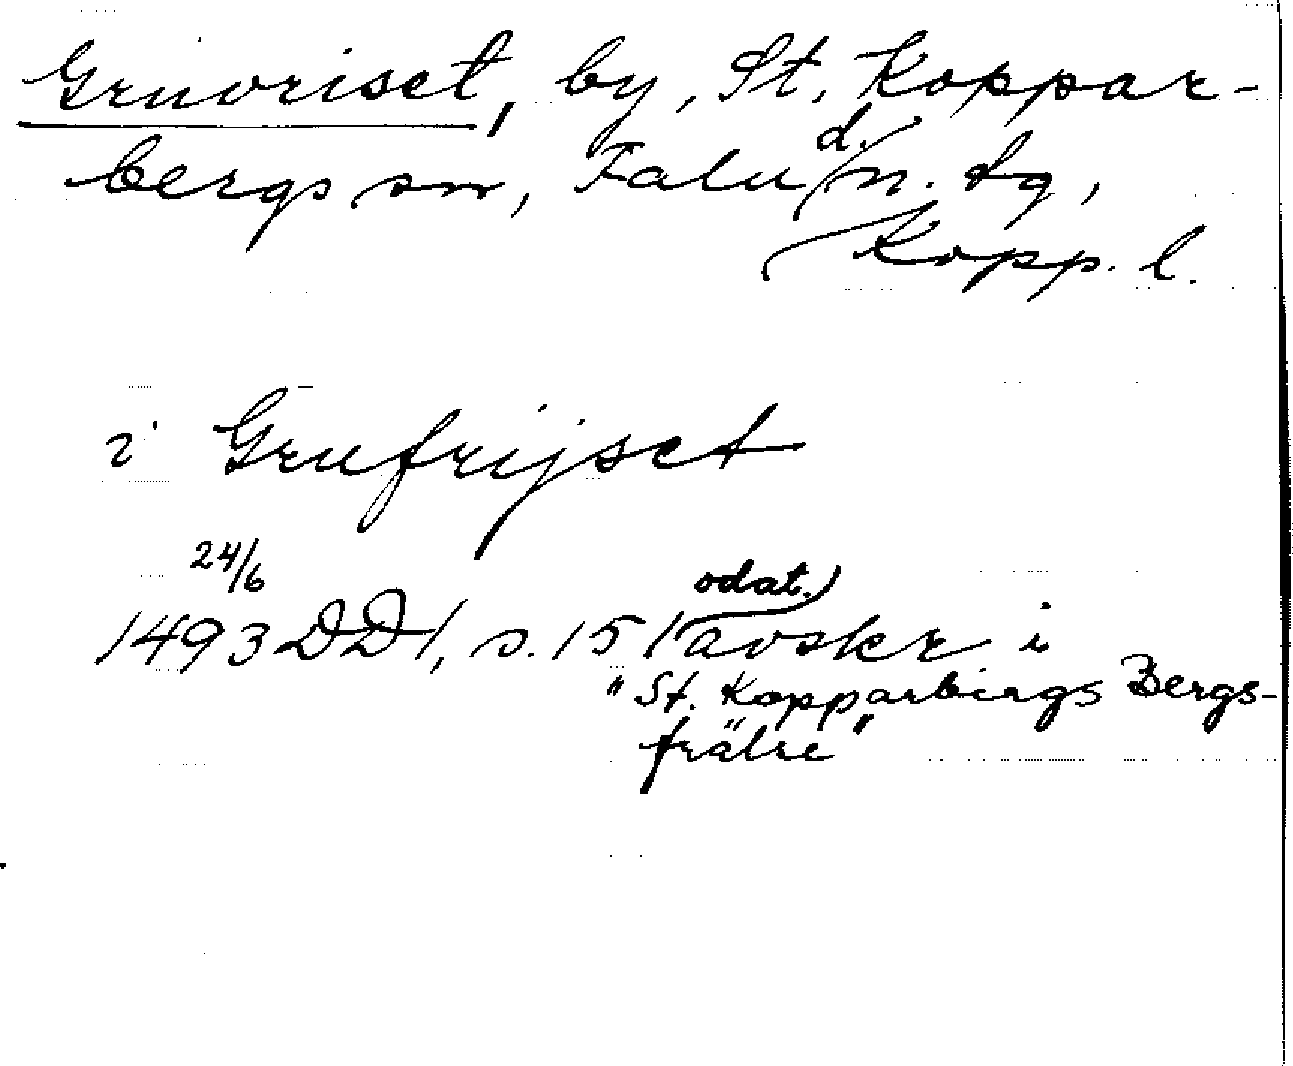 Gruvriset, by, St. Koppar-
bergs sn, Falu d. n. tg,
Kopp. l.
i Grufrijset
24/6
1493 DD1, s. 151 odat. avskr i
"St. Kopparbergs Bergs-
frälse"